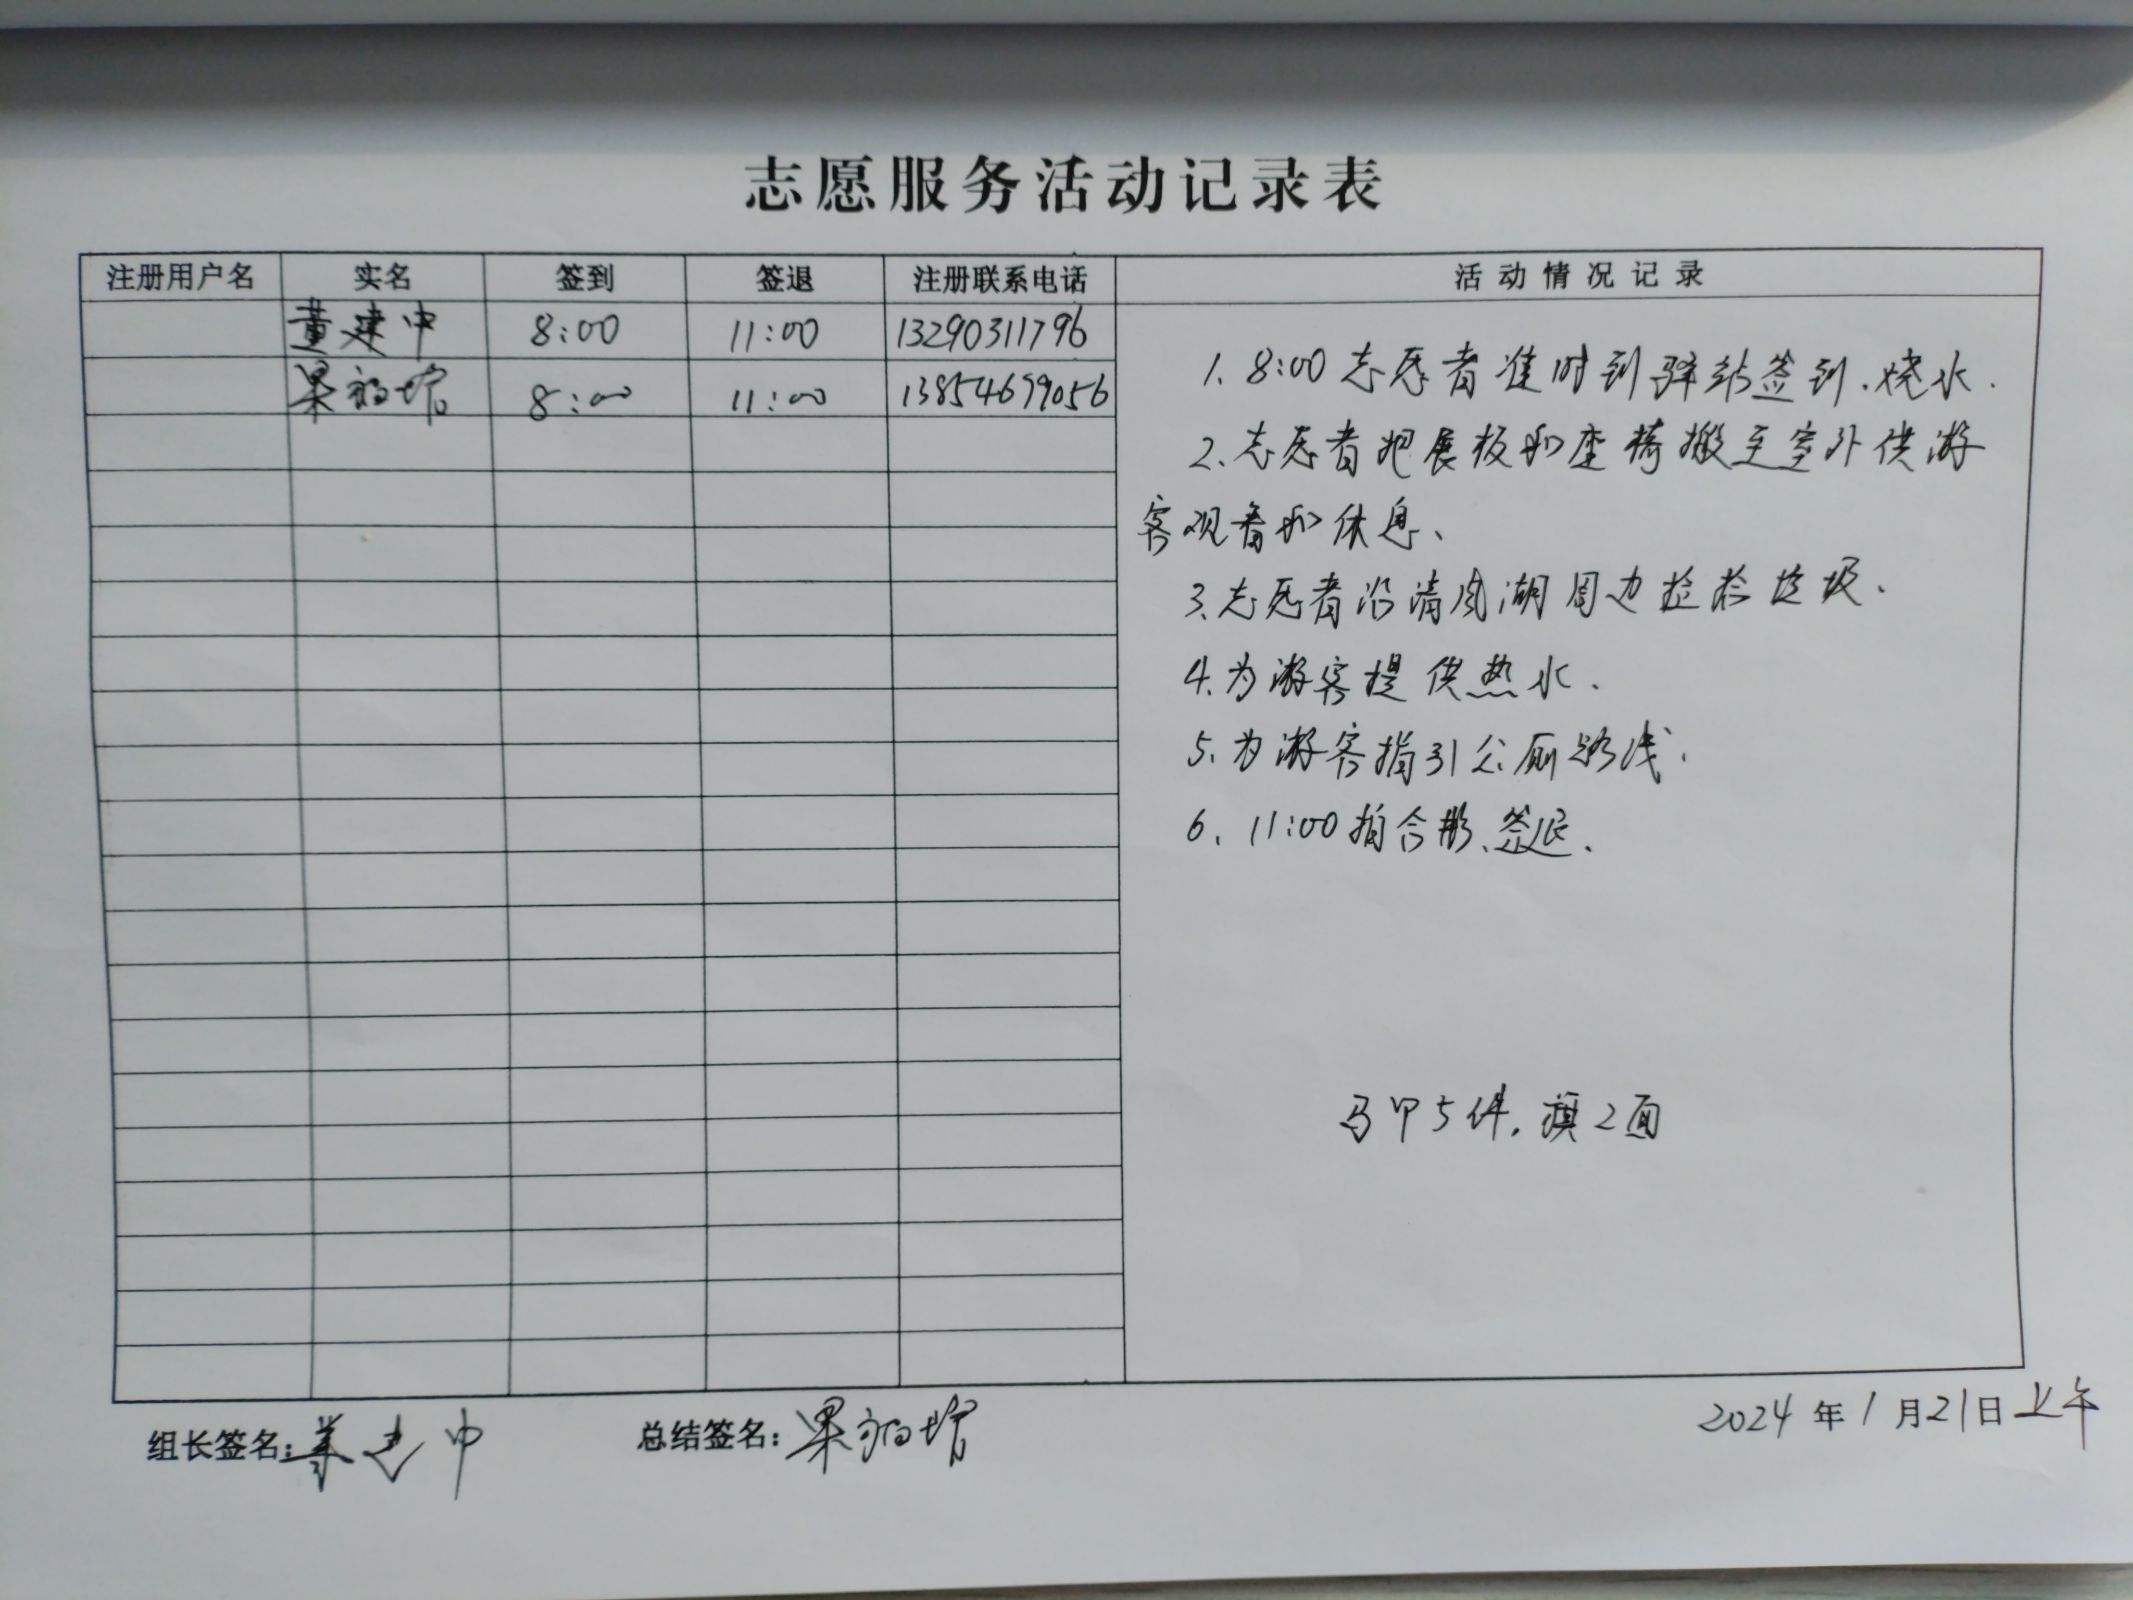 志愿服务活动记录表
注册用户名 实名 签到 签退 注册联系电话 活动情况记录
董建中 8:00 11:00 13290311796
8:00 11:00 13854699056
1、8:00志愿者准时到驿站签到、烧水.
2、志愿者把展板和座椅搬至室外供游
客观看和休息、
3、志愿者沿清风湖周边捡拾垃圾.
4、为游客提供热水.
5、为游客指引公厕路线.
6、11:00拍合影、签退.
马甲5件,旗2面
组长签名:董建中 总结签名: 2024年1月21日上午